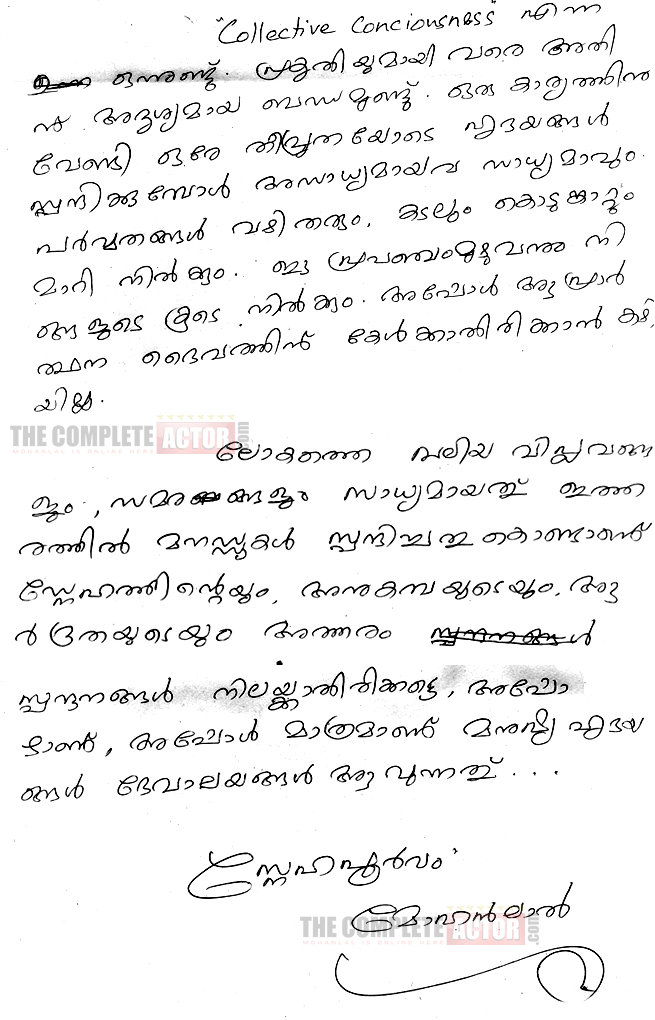 "Collective Conciousness" എന്ന
ഒന്നുണ്ട്. പ്രകൃതിയുമായി വരെ അതി
ന് അദൃശ്യമായ ബന്ധമുണ്ട്. ഒരു കാര്യത്തിന്
വേണ്ടി ഒരേ തീവ്രതയോടെ ഹൃദയങ്ങൾ
സ്പന്ദിക്കുമ്പോൾ അസാധ്യമായവ സാധ്യമാവും.
പർവ്വതങ്ങൾ വഴിതരും, കടലും കൊടുങ്കാറ്റും
മാറി നിൽക്കും. ഈ പ്രപഞ്ചംമുഴുവന്നു നി
ങ്ങളുടെ കൂടെ നിൽക്കും. അപ്പോൾ ആ പ്രാർ
ത്ഥന ദൈവത്തിന് കേൾക്കാതിരിക്കാൻ കഴി
യില്ല.
THE COMPLETE ACTOR.com
MOHANLAL IS ONLINE HERE
ലോകത്തെ വലിയ വിപ്ലവങ്ങ
ളും, സമരങ്ങളും സാധ്യമായത് ഇത്ത
രത്തിൽ മനസ്സുകൾ സ്പന്ദിച്ചതു കൊണ്ടാണ്
സ്നേഹത്തിന്റെയും, അനുകമ്പയുടെയും, ആ
ർദ്രതയുടെയും അത്തരം
സ്പന്ദനങ്ങൾ നിലയ്ക്കാതിരിക്കട്ടെ, അപ്പോ
ഴാണ്, അപ്പോൾ മാത്രമാണ് മനുഷ്യ ഹൃദയ
ങ്ങൾ ദേവാലയങ്ങൾ ആവുന്നത് . . .
സ്നേഹപൂർവം
മോഹൻലാൽ
THE COMPLETE ACTOR.com
MOHANLAL IS ONLINE HERE